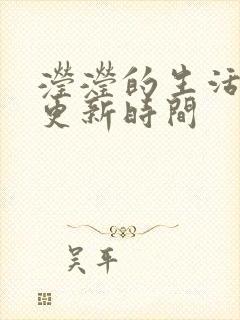 瀅瀅的生活
更新時間
吴平